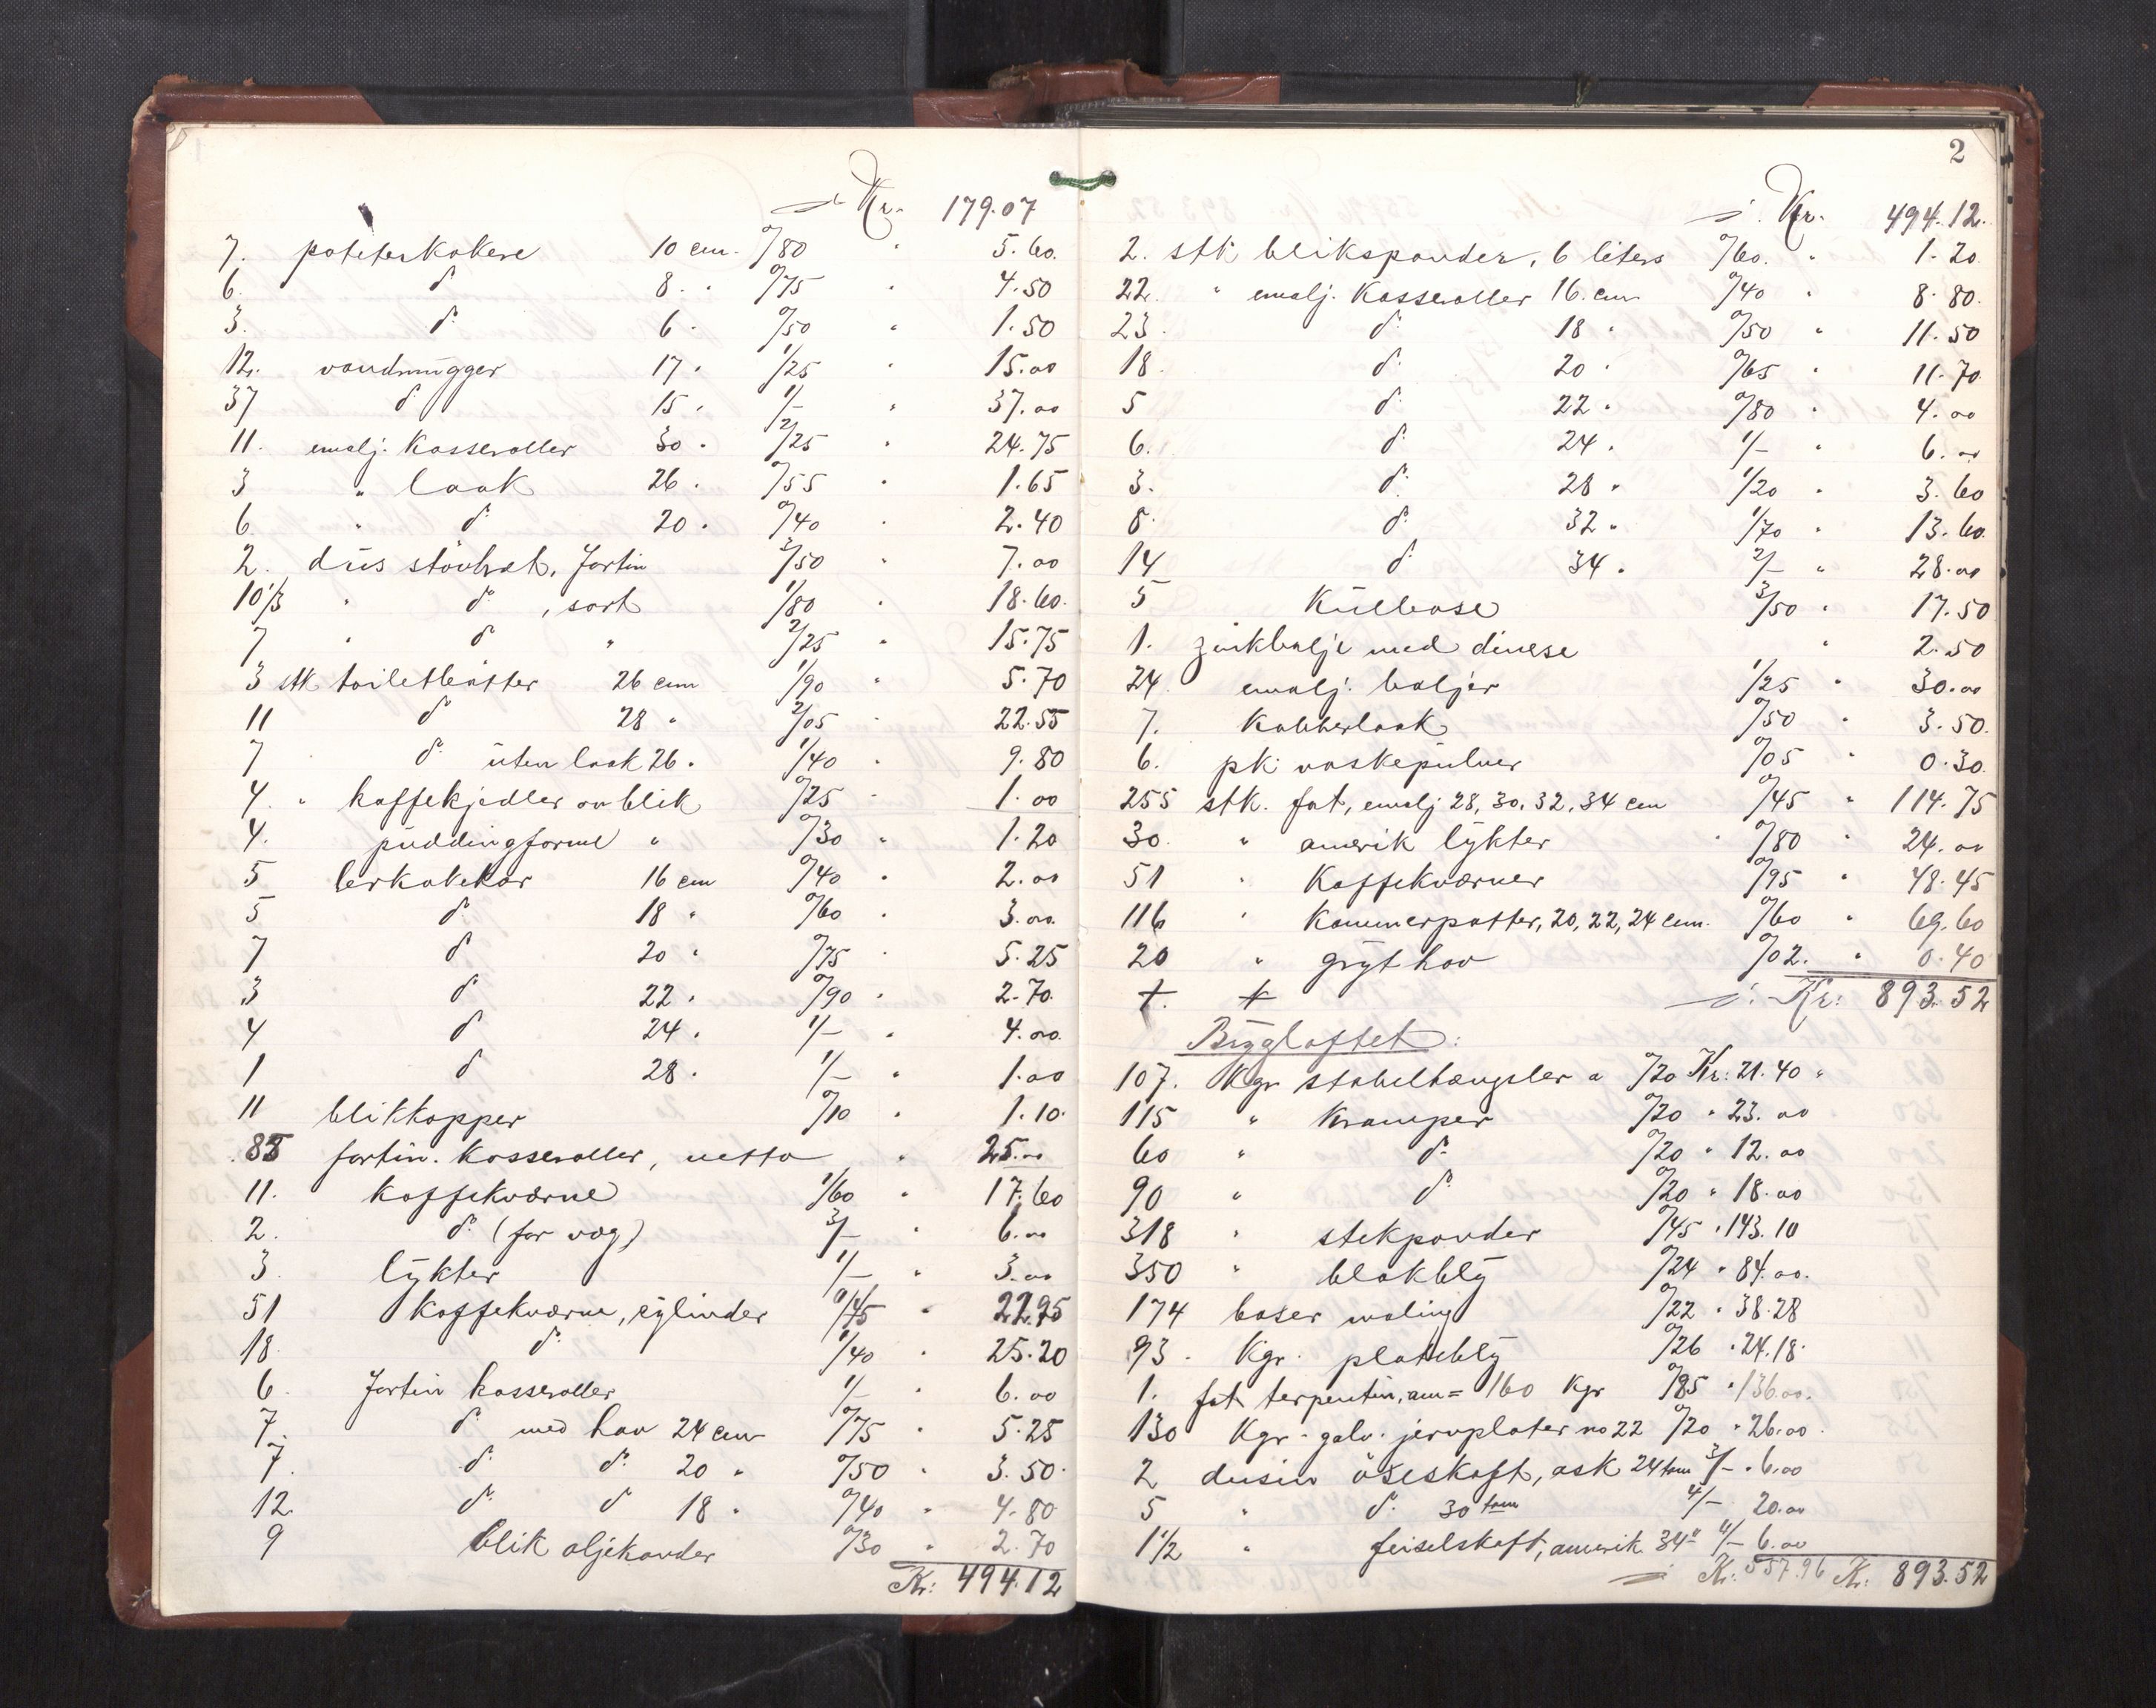 Kr. 179.07
7. poteterkokere 10 cm. 0/80 " 5.60.
6. do 8. " 0/75 " 4.50
3. do 6 " 0/50 " 1.50
12. vandmugger 17 " 1/25 " 15.00
37 do 15 " 1/- " 37.00
11. emalj. Kasseroller 30 " 2/25 " 24.75
3 " laak 26 " 0/55 " 1.65
6 " do 20 " 0/40 " 2.40
2. dus støvbret, fortin 3/50 " 7.00
10 1/3 " do , sort 1/80 " 18.60.
7 " do " 2/25 " 15.75
3 stk toiletbøtter 26 cm 1/90 " 5.70
11 do 28 " 2/05 " 22.55
7 do uten laak 26 " 1/40 " 9.80
4. " kaffekjedler av blik 0/25 " 1.00
4. puddingforme " 0/30 " 1.20
5 lerkakekar 16 cm 0/40 " 2.00
5 do 18 " 0/60 " 3.00.
7 do 20 " 0/75 " 5.25
3 do 22 " 0/90 " 2.70.
4 do 24 " 1/- " 4.00.
1 do 28 " 1/- " 1.00
11 blikkopper 0/10 " 1.10.
fortin. Kasseroller, netto " 25.00
11. Kaffekværne 1/60 " 17.60
2. do (for væg) 3/- " 6.00
3. lykter 1/- " 3.00
51 Kaffekværne, sylinder 0/45 " 22.95
18 do 1/40 " 25.20
6. fortin kasseroller 1/- " 6.00
7. do med hav 24 cm 0/75 " 5.25
7. do do 20 " 0/50 " 3.50.
12. do do 18 " 0/40 " 4.80
9 blik oljekander 0/30 " 2.70
Kr: 494.12
2
Kr. 494.12.
2. stk blikspander, 6 liters 0/60. " 1.20
22. " emalj. Kasseroller 16. cm 0/40 " 8.80.
23. do 18 " 0/50 " 11.50
18. do 20 " 0/65 " 11.70.
5 do 22 " 0/80 " 4.00
6. do 24 " 1/- " 6.00
3. do 28 " 1/20 " 3.60
8. do 32 " 1/70 " 13.60.
14 do 34 " 2/- " 28.00
5 Kulbose 3/50 " 17.50
1. zinkbalje med " 2.50
24 emalj. baljer 1/25 " 30.00
7. Kobberlaak 0/50 " 3.50.
6. pk. vaskepulver 0/05 " 0.30.
255 stk. fat, emalj 28, 30, 32, 34 cm 0/45 " 114.75
30. " amerik lykter " 0/80 " 24.00
51 " Kaffekværner 0/95 " 48.45
116 " Kammerpotter, 20, 22, 24 cm. 0/60 " 69.60
20 " gryt hav 0/02. " 0.40
Kr: 893.52
Bryggloftet:
107. Kgr stabelhængsler a 0/20 Kr: 21.40 "
115 " Kramper 0/20 " 23.00
60 " do 0/20 " 12.00
90 " do 0/20 " 18.00
318 " stekpander 0/45 " 143.10
350 " blokbly 0/24 " 84.00.
174 boser maling 0/22 " 38.28
93. Kgr. platebly 0/26 " 24.18.
1. fat terpentin, am = 160 Kgr 0/85 " 136.00.
130 Kgr. galv. jernplater no 22 0/20 " 26.00.
2 dusin øseskaft, ask 24 tom 3/- " 6.00
5 " do 30 tom 4/- 20.00
1 1/2 " feiselskaft, amerik 34" 4/- 6.00
Kr. 557.96 Kr. 893.52